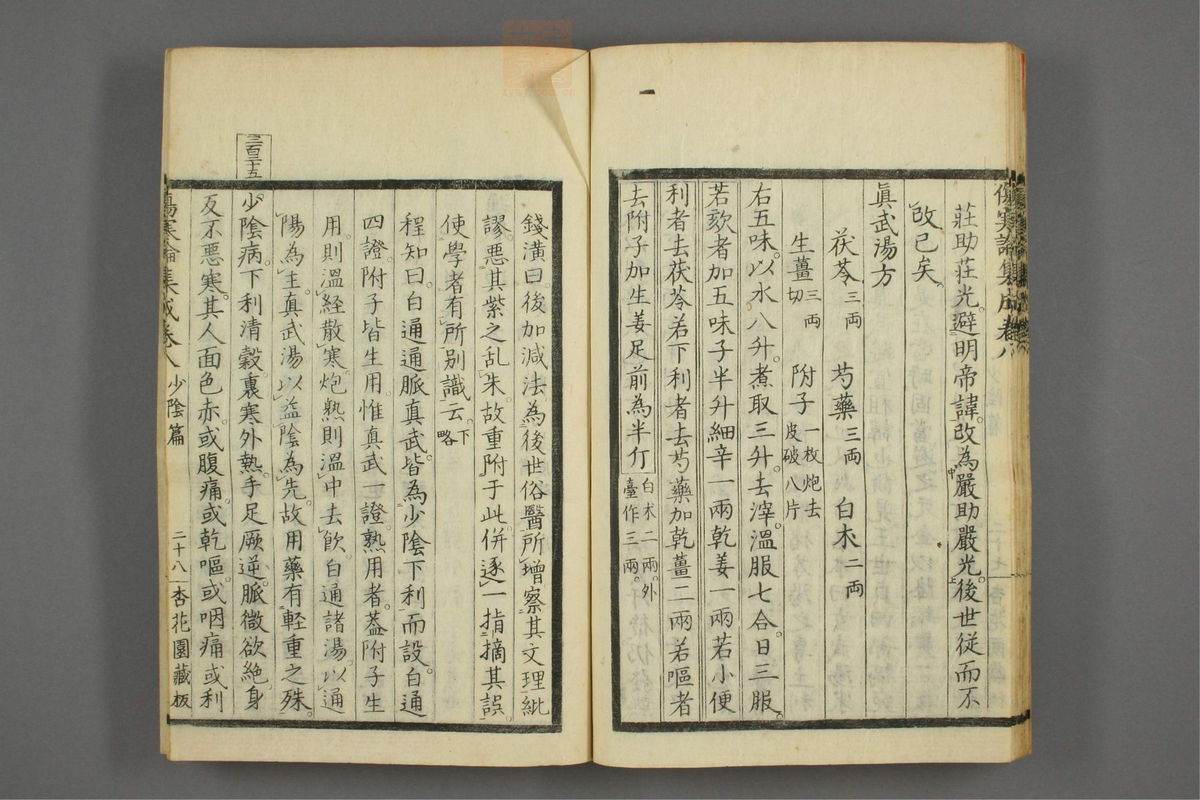 傷寒論集成卷八
莊助莊光。避明帝諱。改為嚴助嚴光。後世從而不
改已矣。
眞武湯方
茯苓三両 芍藥三両 白朮二両
生薑三両切 附子一枚炮去皮破八片
右五味。以水八升。煮取三升。去滓。溫服七合。日三服。
若欬者加五味子半升細辛一兩乾姜一兩若小便
利者去茯苓若下利者去芍藥加乾薑二兩若嘔者
去附子加生姜足前為半斤白朮二兩。外臺作三兩。
錢潢曰。後加減法。為後世俗醫所增。察其文理紕
謬。惡其紫之亂朱。故重附于此。併逐一指摘其誤。
使學者有所別識云。下略
程知曰。白通通脈真武。皆為少陰下利而設。白通
四證。附子皆生用。惟真武一證。熟用者。蓋附子生
用則溫経散寒。炮熟則溫中去飲。白通諸湯。以通
陽為主。真武湯。以益陰為先。故用藥有軽重之殊。
三百二十五
少陰病。下利清穀。裏寒外熱。手足厥逆。脈微欲絶。身
反不惡寒。其人面色赤。或腹痛。或乾嘔。或咽痛。或利
傷寒論集成卷八 少陰篇 二十八 杏花園藏板